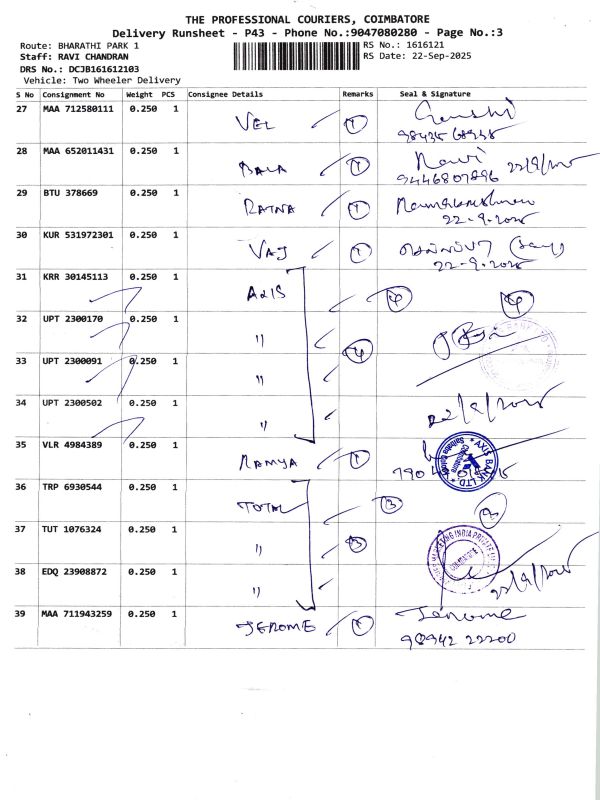 THE PROFESSIONAL COURIERS, COIMBATORE
Delivery Runsheet - P43 - Phone No.:9047080280 - Page No.:3
Route: BHARATHI PARK 1
RS No.: 1616121
Staff: RAVI CHANDRAN
RS Date: 22-Sep-2025
DRS No.: DCJB161612103
Vehicle: Two Wheeler Delivery
S No Consignment No Weight PCS Consignee Details Remarks Seal & Signature
27 MAA 712580111 0.250 1 VEL 1
28 MAA 652011431 0.250 1 BALA 1 Ravi
9446807896 22/9/2025
29 BTU 378669 0.250 1 RATNA 1
22-9-2025
30 KUR 531972301 0.250 1 VAJ 1
22-9-2025
31 KRR 30145113 0.250 1 AXIS 4 4
32 UPT 2300170 0.250 1 " 4
33 UPT 2300091 0.250 1 "
34 UPT 2300502 0.250 1 "
22/9/2025
35 VLR 4984389 0.250 1 RAMYA 1
AXIS BANK LTD
36 TRP 6930544 0.250 1 TOTAL 3 3
37 TUT 1076324 0.250 1 " 3
MARKETING INDIA PRIVATE
COIMBATORE
38 EDQ 23908872 0.250 1 "
22/9/2025
39 MAA 711943259 0.250 1 JEROME 1 Jerome
98942 22200